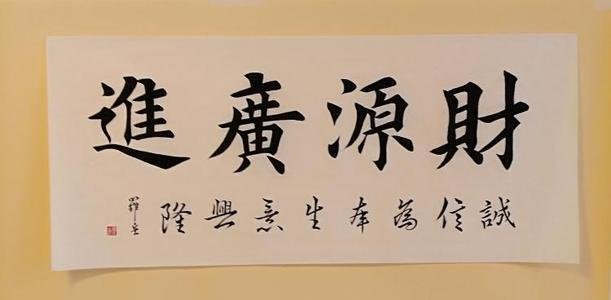 財源廣進
誠信為本生意興隆